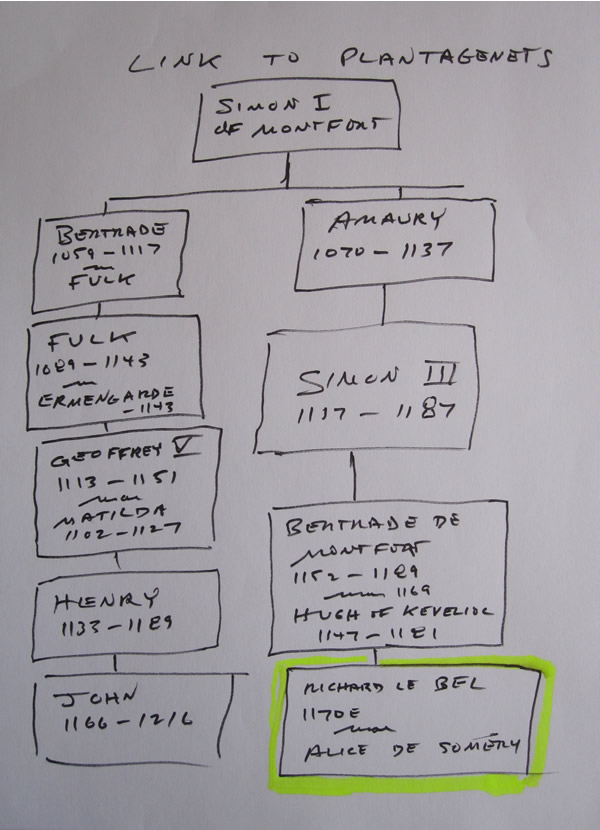 LINK TO PLANTAGENETS
SIMON I
OF MONTFORT
BERTRADE
1059-1117
m
FULK
AMAURY
1070-1137
FULK
1089-1143
m
ERMENGARDE
-1143
SIMON III
1137-1187
GEOFFREY V
1113-1151
mar
MATILDA
1102-1127
BERTRADE DE
MONTFORT
1152-1189
mar 1169
HUGH OF KEVELIOC
1147-1181
HENRY
1133-1189
JOHN
1166-1216
RICHARD LE BEL
1170E
mar
ALICE DE SOMERY